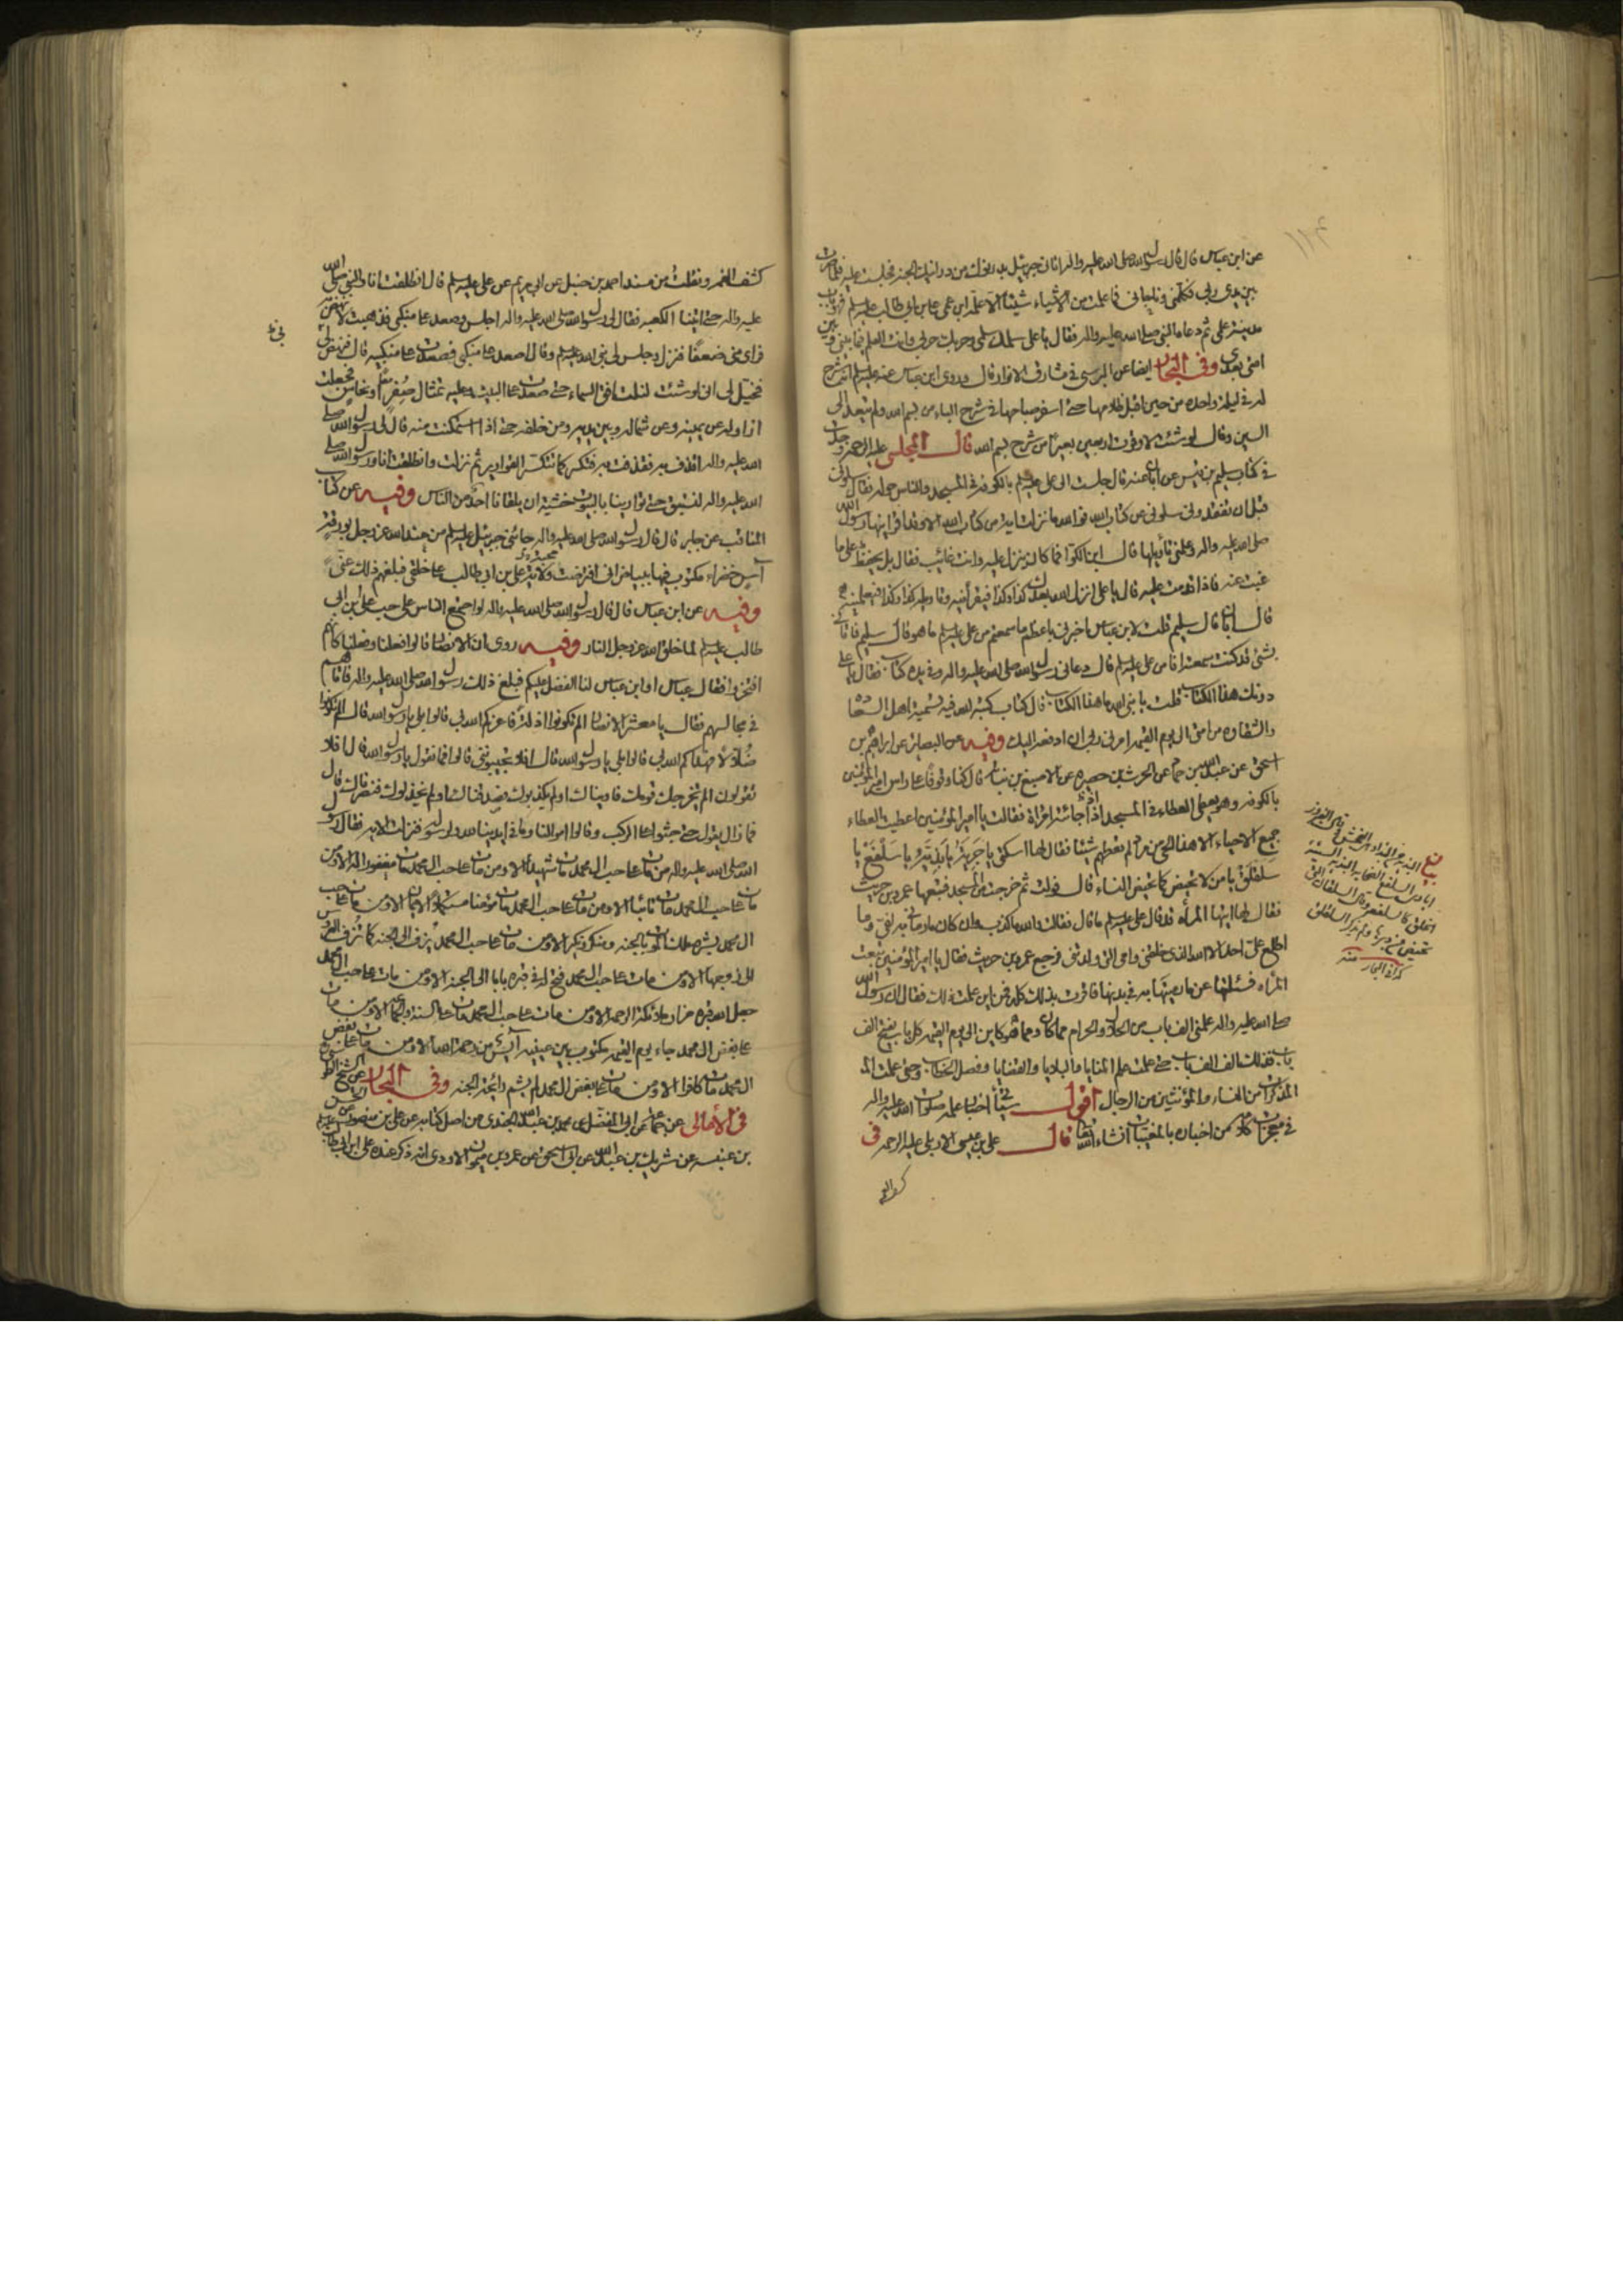 عن ابن عباس قال قال رسول الله صلى الله عليه واله اتانى جبرئيل بدرنوك من درانيك الجنه فجلست عليه فلما صرت
بين يدى ربى فكلمنى وناجانى فما علمت من الاشياء شيئا الا علمه ابن عمى على بن ابى طالب عليه السلم فهو باب
مدينة علمى ثم دعاه النبى صلى الله عليه واله فقال يا على سلمك سلمى وحربك حربى وانت العلم فيما بينى وبين
امتى بعدى وفى البحار ايضا عن البرسى فى مشارق الانوار قال وروى ابن عباس عنه عليه السلم انه شرح
له فى ليلة واحده من حين اقبل ظلامها حتى اسفر صباحها فى شرح الباء من بسم الله ولم يتعد الى
السين وقال لو شئت لاوقرت اربعين بعيرا من شرح بسم الله قال المجلسى عليه الرحمه وجدت
فى كتاب سليم بن قيس عن ابان عنه قال جلست الى على عليه السلم بالكوفه فى المسجد والناس حوله فقال سلونى
قبل ان تفقدونى سلونى عن كتاب الله فوالله ما نزلت اية من كتاب الله الا وقد اقرانيها رسول الله
صلى الله عليه واله وعلمنى تأويلها قال ابن الكوا فما كان ينزل عليه وانت غائب فقال بلى يحفظ على ما
غبت عنه فاذا قدمت عليه قال يا على انزل الله بعدك كذا وكذا فيقرأنيه وتاويله كذا وكذا فيعلمنيه
قال ابان قال سليم قلت لابن عباس اخبرنى باعظم ما سمعتم من على عليه السلم ما هو قال سليم فاتانى
بشئ قد كنت سمعته انا من على عليه السلم قال دعانى رسول الله صلى الله عليه واله وفى يده كتاب فقال يا على
دونك هذا الكتاب قلت يا نبى الله ما هذا الكتاب قال كتاب كتبه الله فيه تسمية اهل السعاده
والشقاوه من امتى الى يوم القيمه امرنى ربى ان ادفعه اليك وفيه عن البصائر عن ابراهيم بن
اسحق عن عبد الله بن حماد عن الحرث بن حصيره عن الاصبغ بن نباته قال كنا وقوفا على راس امير المؤمنين
بالكوفه وهو يعطى العطاء فى المسجد اذ جائته امرأة فقالت يا امير المؤمنين اعطيت العطاء
جميع الاحياء الا هذا الحى من مراد لم تعطهم شيئا فقال لها اسكتى يا جريئة يا بذية يا سلفع يا
سلقلق يا من لا تحيض كما تحيض النساء قال فولت ثم خرجت من المسجد فتبعها عمرو بن حريث
فقال لها ايتها المرأه قد قال على عليه السلم ما قال فقالت والله ما كذب وان كان ما رمانى به لفىّ وما
اطلع على احد الا الله الذى خلقنى وامى التى ولدتنى فرجع عمرو بن حريث فقال يا امير المؤمنين تبعت
المرأه فسئلتها عن ما رميتها به فى بدنها فاقرت بذلك كله فمن اين علمت ذلك فقال ان رسول الله
صلى الله عليه واله علمنى الف باب من الحلال والحرام مما كان ومما هو كاين الى يوم القيمه كل باب يفتح الف
باب فذلك الف الف باب حتى علمت علم المنايا والبلايا والقضايا وفصل الخطاب وحتى علمت
المذكرات من النساء والمؤنثين من الرجال اقول سيأتى اخبار علمه صلوات الله عليه واله
فى معجزاته من اخباره بالمغيبات انشاء الله قال على بن عيسى الاربلى عليه الرحمه فى
كشف الغمه ونقلت من مسند احمد بن حنبل عن ابى مريم عن على عليه السلم قال انطلقت انا والنبى صلى الله
عليه واله حتى اتينا الكعبه فقال لى رسول الله صلى الله عليه واله اجلس وصعد على منكبى فذهبت لانهض به
فراى منى ضعفا فنزل وجلس لى نبى الله عليه السلم وقال اصعد على منكبى فصعدت على منكبيه قال فنهض بى
فخيل لى انى لو شئت لنلت افق السماء حتى صعدت على البيت وعليه تمثال صفر او نحاس فجعلت
ازاوله عن يمينه وعن شماله وبين يديه ومن خلفه حتى اذا استمكنت منه قال لى رسول الله صلى
الله عليه واله اقذف به فقذفت به فتكسر كما تتكسر القوارير ثم نزلت وانطلقت انا ورسول الله صلى
الله عليه واله نستبق حتى توارينا بالبيوت خشية ان يلقانا احد من الناس وفيه عن كتاب
المناقب عن جابر قال قال رسول الله صلى الله عليه واله جائنى جبرئيل عليه السلم من عند الله عز وجل بورقة
آس خضراء مكتوب فيها ببياض انى افترضت محبة على بن ابى طالب على خلقى فبلغهم ذلك عنى
وفيه عن ابن عباس قال قال رسول الله صلى الله عليه واله لو اجتمع الناس على حب على بن ابى
طالب عليه السلم لما خلق الله عز وجل النار وفيه روى ان الانصار قالوا فعلنا وفعلنا كانهم
افتخروا فقال عباس او ابن عباس لنا الفضل عليكم فبلغ ذلك رسول الله صلى الله عليه واله فاتاهم
فى مجالسهم فقال يا معشر الانصار الم تكونوا اذلة فاعزكم الله بى قالوا بلى يا رسول الله قال الم تكونوا
ضلالا فهداكم الله بى قالوا بلى يا رسول الله قال افلا تجيبونى قالوا فما نقول يا رسول الله قال افلا
تقولون الم يخرجك قومك فاويناك او لم يكذبوك فصدقناك او لم يخذلوك فنصرناك قال
فما زال يقول حتى جثوا على الركب وقالوا اموالنا وما فى ايدينا لله ولرسوله فنزلت الايه فقال رسول
الله صلى الله عليه واله من مات على حب ال محمد مات شهيدا الا ومن مات على حب ال محمد مات مغفورا له الا ومن
مات على حب ال محمد مات تائبا الا ومن مات على حب ال محمد مات مؤمنا مستكمل الايمان الا ومن مات على حب
ال محمد بشره ملك الموت بالجنه ومنكر ونكير الا ومن مات على حب ال محمد يزف الى الجنه كما تزف العروس
الى زوجها الا ومن مات على حب ال محمد فتح له فى قبره بابا الى الجنه الا ومن مات على حب ال محمد
جعل الله قبره مزار ملائكة الرحمه الا ومن مات على حب ال محمد مات على السنة والجماعه الا ومن مات
على بغض ال محمد جاء يوم القيمه مكتوب بين عينيه آيس من رحمة الله الا ومن مات على بغض
ال محمد مات كافرا الا ومن مات على بغض ال محمد لم يشم رائحة الجنه وفى البحار عن الشيخ الطوسى
فى الأمالى عن جماعة عن ابى المفضل عن محمد بن عبد الله الجندى من اصل كتابه عن على بن منصور عن
بن عنبسه عن شريك بن عبد الله عن ابى اسحق عن عمرو بن ميمون الاودى انه ذكر عنده على بن ابى طالب